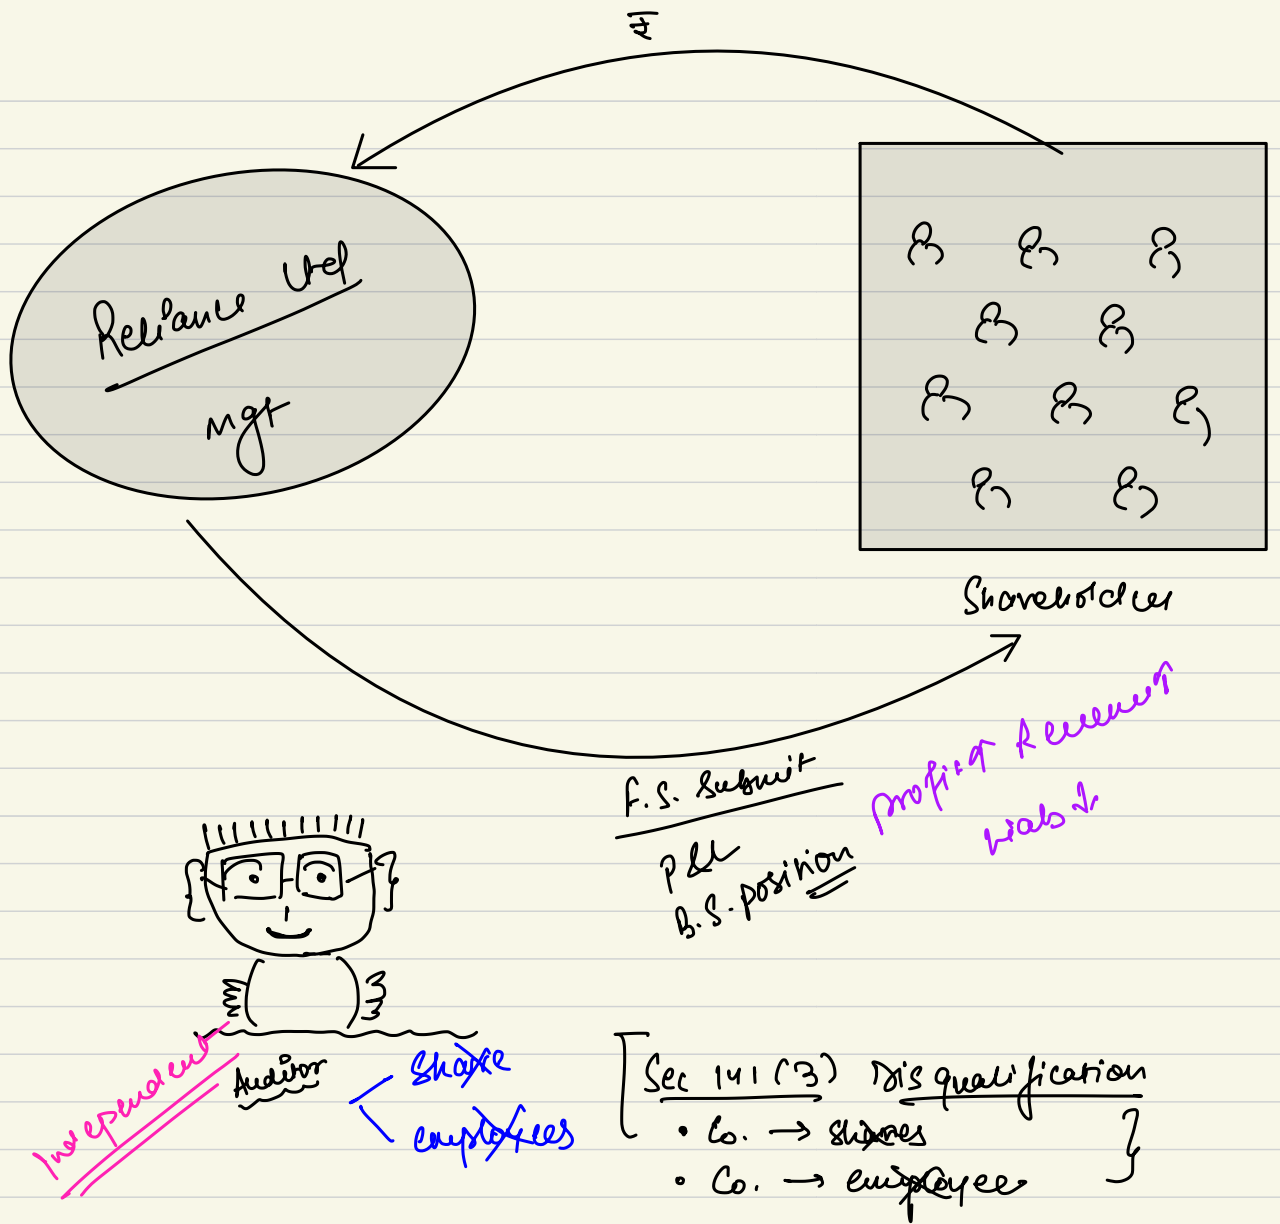 ₹
Reliance Ltd
mgt
Shareholders
F.S. Submit
P&L
B.S. position
profit↑ Revenue↑
Liab↓
Independent
Auditor
Share
employees
Sec 141 (3) Disqualification
• Co. → shares
• Co. → employee